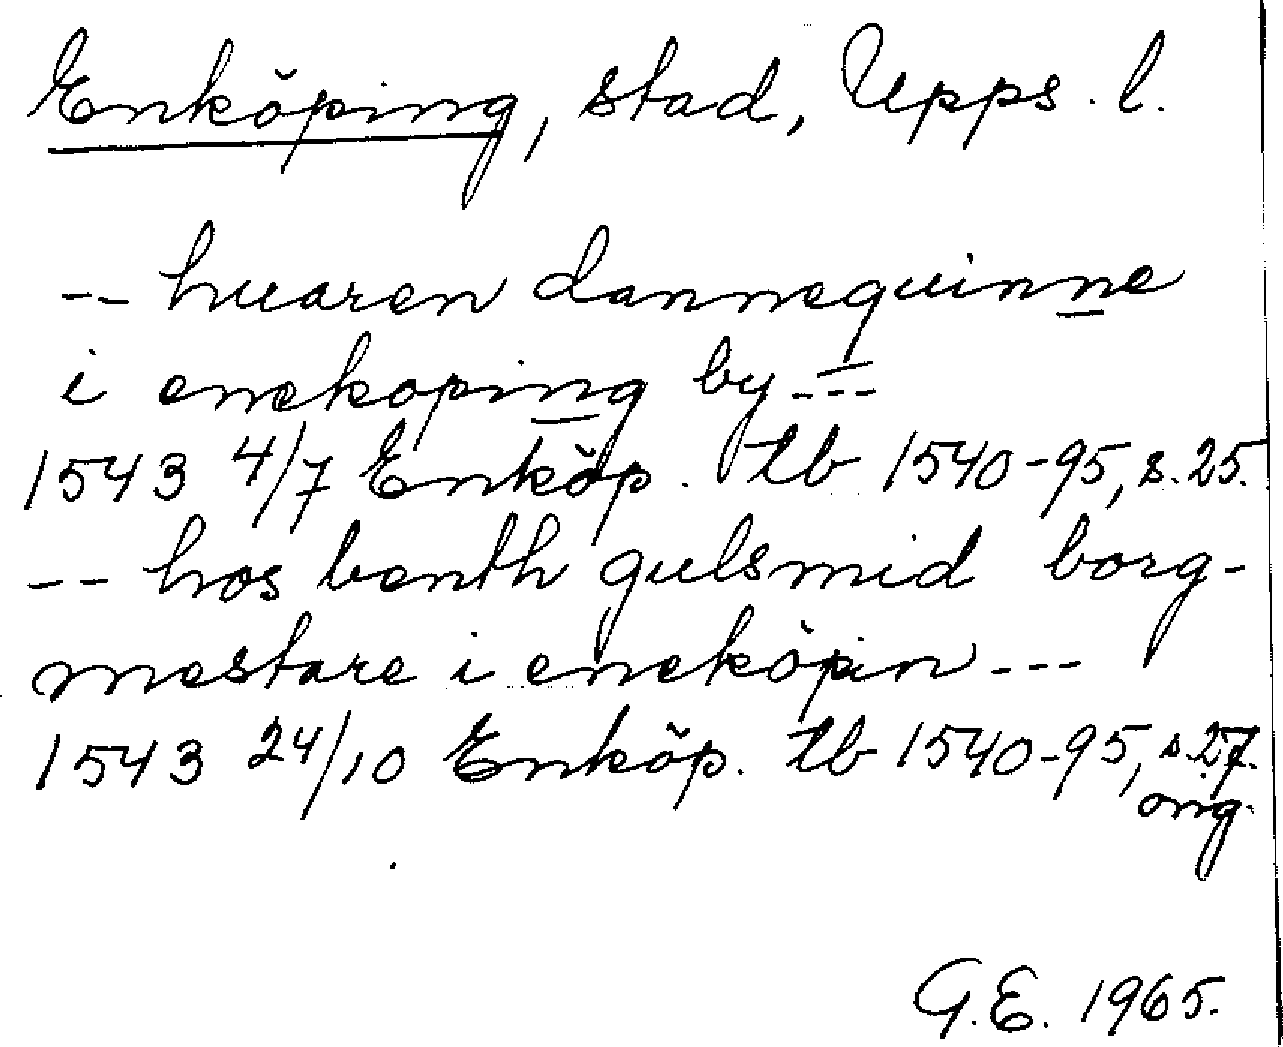 Enköping, stad, Upps. l.
-- huaren dannequinne
i enekoping by ---
1543 4/7 Enköp. tb 1540-95, s. 25.
-- hos benth gulsmid borg-
mestare i eneköpin ---
1543 24/10 Enköp. tb 1540-95, s. 27.
orig.
G.E. 1965.